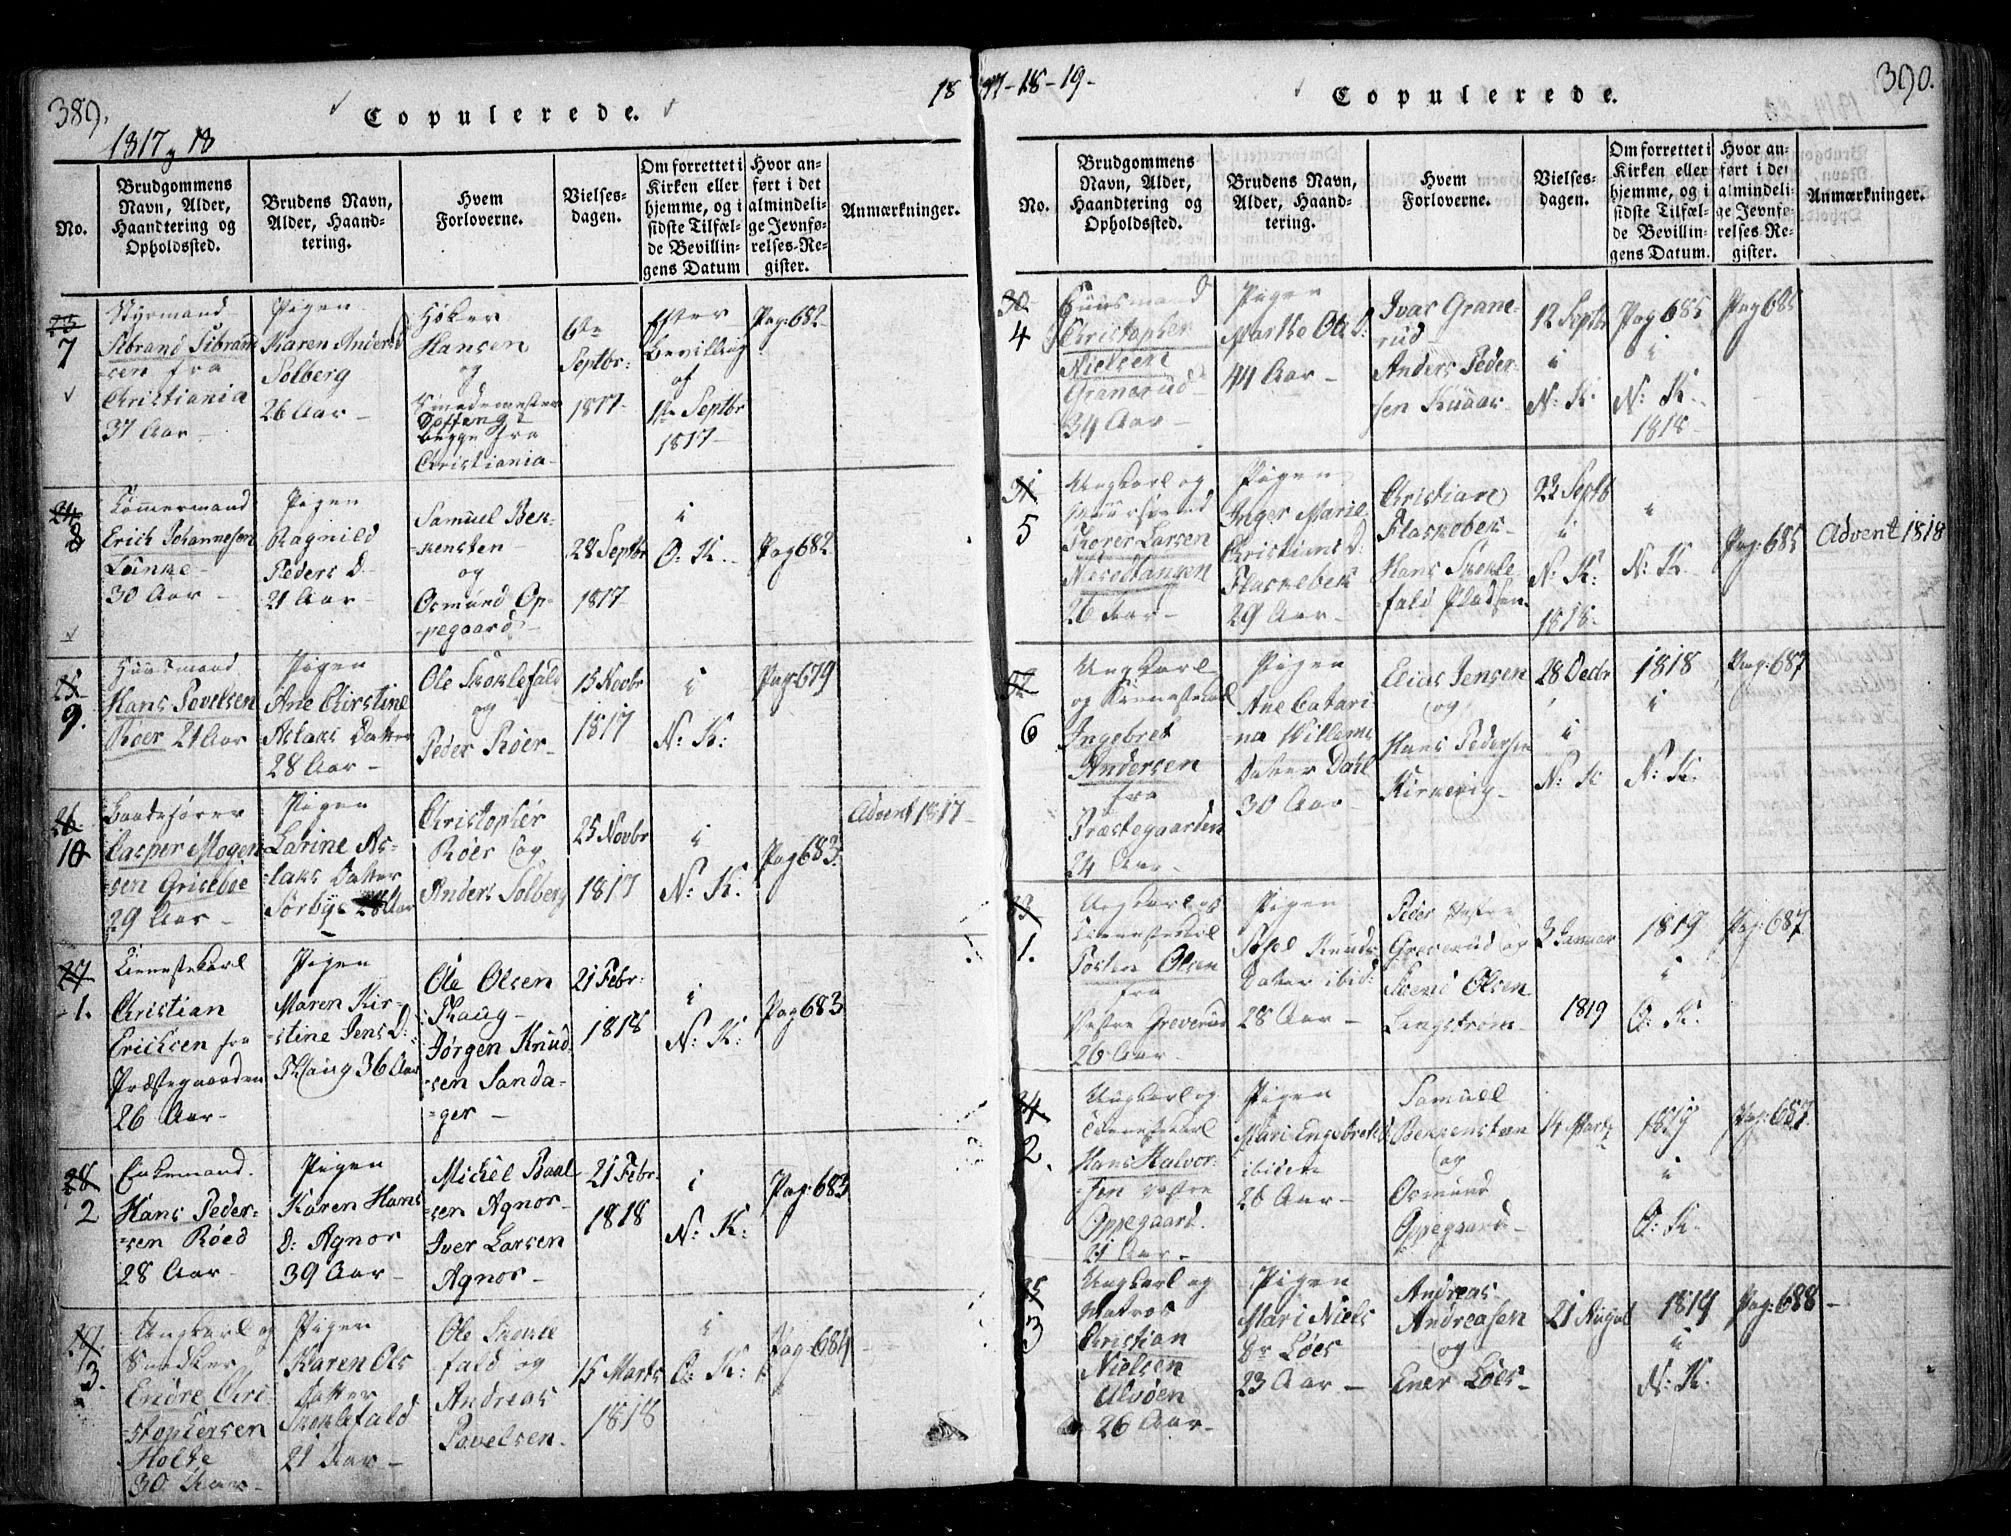 389.
Copulerede.
1817 & 18
18
No.
Brudgommens
Navn, Alder,
Haandtering og
Opholdssted.
Brudens Navn,
Alder, Haand-
tering.
Hvem
Forloverne.
Vielses-
dagen.
Om forrettet i
Kirken eller
hjemme, og i
sidste Tilfæl-
de Bevillin-
gens Datum
Hvor an-
ført i det
almindeli-
ge Jevnfø-
relses-Re-
gister.
Anmærkninger.
23
7
Styrmand
Sibrand Sibrand
-sen fra
Christiania
37 Aar
Pigen
Karen Anders D
Solberg
26 Aar
Høker
Hansen
og
Smedemester
begge fra
Christiania
6te
Septbr:
1817
Efter
Bevilling
af
1te Septbr
1817
Pag: 682
24
8
Tømmermand
Erich Johannesen
30 Aar
Pigen
Ragnild
Peders D
21 Aar
Samuel Bek-
kensten
og
Osmund Op-
-pegaard
28 Septbr
1817
i
O: K.
Pag 682
25
9.
Huusmand
Hans Povelsen
Røer 21 Aar
Pigen
Ane Kirstine
Aslaks Datter
28 Aar
Ole Skoklefald
og
Peder Røer
15 Novbr
1817
i
N: K:
Pag: 679
26
10
Baadsfører
Casper Mogen
-sen Grisebøe
29 Aar
Pigen
Larine As-
-laks Datter
Sørbye 28 Aar
Christopher
Røer og
Anders Solberg
25 Novbr
1817
i
N: K.
Pag 683.
Advent 1817
27
1.
Tienestekarl
Christian
Ericksen fra
Præstegaarden
26 Aar
Pigen
Maren Kir-
-stine Jens D:
Skoug 36 Aar
Ole Olsen
Skoug
Jørgen Knud-
-sen Sanda-
-ger
21 Febr:
1818
i
N: K:
Pag 683
28
2
Enkemand.
Hans Peder-
-sen Røed
28 Aar
Pigen
Karen Hans
D: Agnor
39 Aar
Michel Paal
-sen Agnor
Iver Larsen
Agnor
21 Febr.
1818
i
N: K:
Pag: 683
29.
3.
Ungkarl og
Endre Chri-
-stophersen
Holte
30 Aar
Pigen
Karen Ols
Datter
Skoklefald
21 Aar
Ole Skokle
fald og
Andreas
Povelsen.
15 Marts
1818
i
O: K:
Pag: 684
17-18-19-
Copulerede.
390.
No.
Brudgommens
Navn, Alder,
Haandtering og
Opholdssted.
Brudens Navn,
Alder, Haand-
tering.
Hvem
Forloverne.
Vielses-
dagen.
Om forrettet i
Kirken eller
hjemme, og i
sidste Tilfæl-
de Bevillin-
gens Datum.
Hvor an-
ført i det
almindeli-
ge Jevnfø-
relses-Re-
gister.
Anmærkninger.
30
4
Huusmand
Christopher
Nielsen
Granerud
34 Aar
Pigen
Marthe Ols D:
44 Aar
Ivar Grane-
rud
Anders Peder-
sen
12 Septbr
i
N: K:
Pag 685
i
N: K.
1818
Pag 685
31
5
Ungkarl og
Thorer Larsen
Nesodtangen
26 Aar
Pigen
Inger Marie
Christians D:
Flaskebek
29 Aar
Christian
Flaskebek
Hans Skokle
fald Pladsen
22 Septb
i
N: K:
1818.
i
N: K.
Pag: 685
Advent 1818
32
6
Ungkarl
og Tienestekarl
Ingebret
Andersen
fra
Præstegaarden
24 Aar
Pigen
Ane Catari-
-na Willems
Datter Dahl
30 Aar
Elias Jensen
og
Hans Pedersen
Kirkevig
28 Decbr
i
N: K
1818
i
N: K.
Pag: 687
33
1.
Ungkarl og
Tienestekarl
Tosten Olsen
fra
Vestre Greverud
26 Aar
Pigen
Knuds
Datter ibid:
28 Aar
Peder Vestre
Greverud og
Svend Olsen
Lingstrøm
3 Januar
1819
1819
i
O: K.
Pag: 687
34
2.
Ungkarl og
Tienestekarl
Hans Halvor-
-sen Vestre
Oppegaard.
21 Aar
Pigen
Mari Engebrets D
ibidem
26 Aar
Samuel
Bekkensteen
og
Osmund
Oppegaard
14 Marts
1819
i
O: K.
Pag: 687.
35
3
Ungkarl og
Matros
Christian
Nielsen
Alvøen
26 Aar
Pigen
Mari Niels
Dr Løes
23 Aar
Andreas
Andreasen
og
Ener Løes
21 August
1819
i
N: K.
Pag: 688